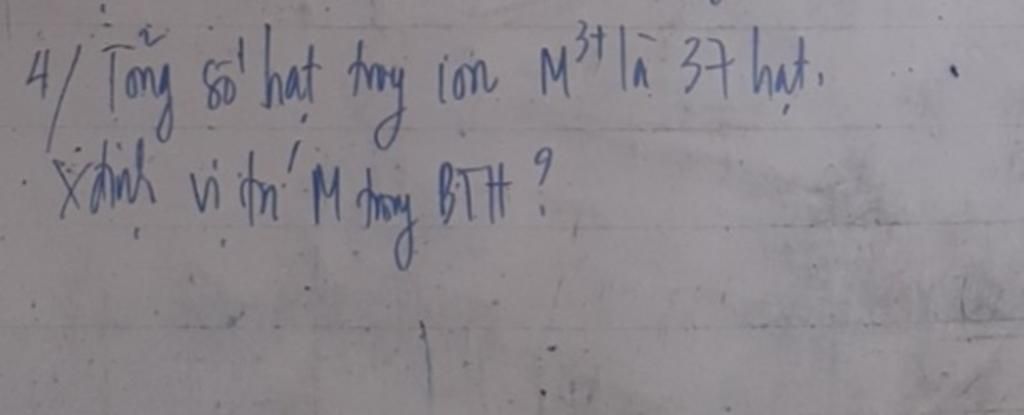 4/ Tổng số hạt trong ion M³⁺ là 37 hạt.
Xđịnh vị trí M trong BTH?